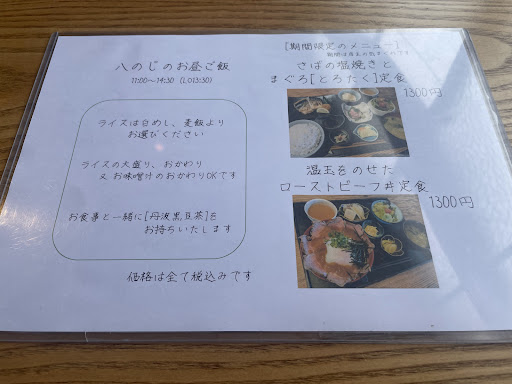 八のじのお昼ご飯
11:00〜14:30 (LO13:30)
ライスは白めし、麦飯より
お選びください
ライスの大盛り、おかわり
又お味噌汁のおかわりOKです
お食事と一緒に[丹波黒豆茶]を
お持ちいたします
価格は全て税込みです
[期間限定のメニュー]
さばの塩焼きと
まぐろ[とろたく]定食
1300円
温玉をのせた
ローストビーフ丼定食
1300円